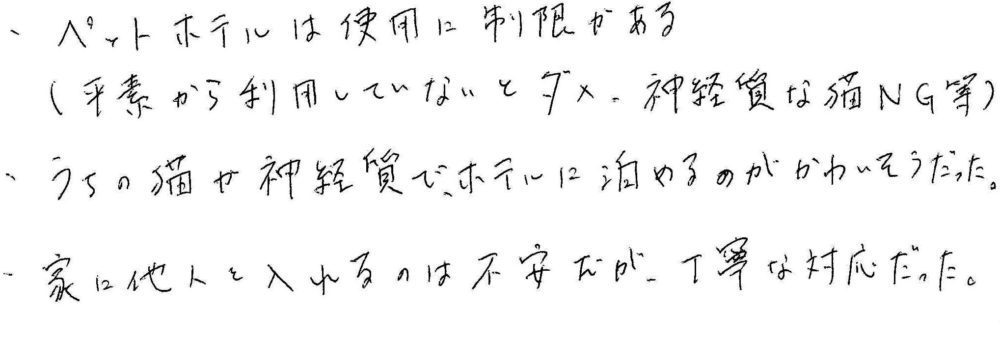 ・ペットホテルは使用に制限がある
(平素から利用していないとダメ、神経質な猫NG等)
・うちの猫が神経質で、ホテルに泊めるのがかわいそうだった。
・家に他人を入れるのは不安だが、丁寧な対応だった。